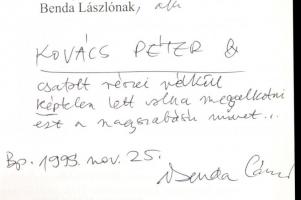 Benda Lászlónak, aki
KOVÁCS PÉTER &
csatolt részei nélkül
képtelen lett volna megalkotni
ezt a nagyszabású művet...
Bp. 1993. nov. 25.
Benda László